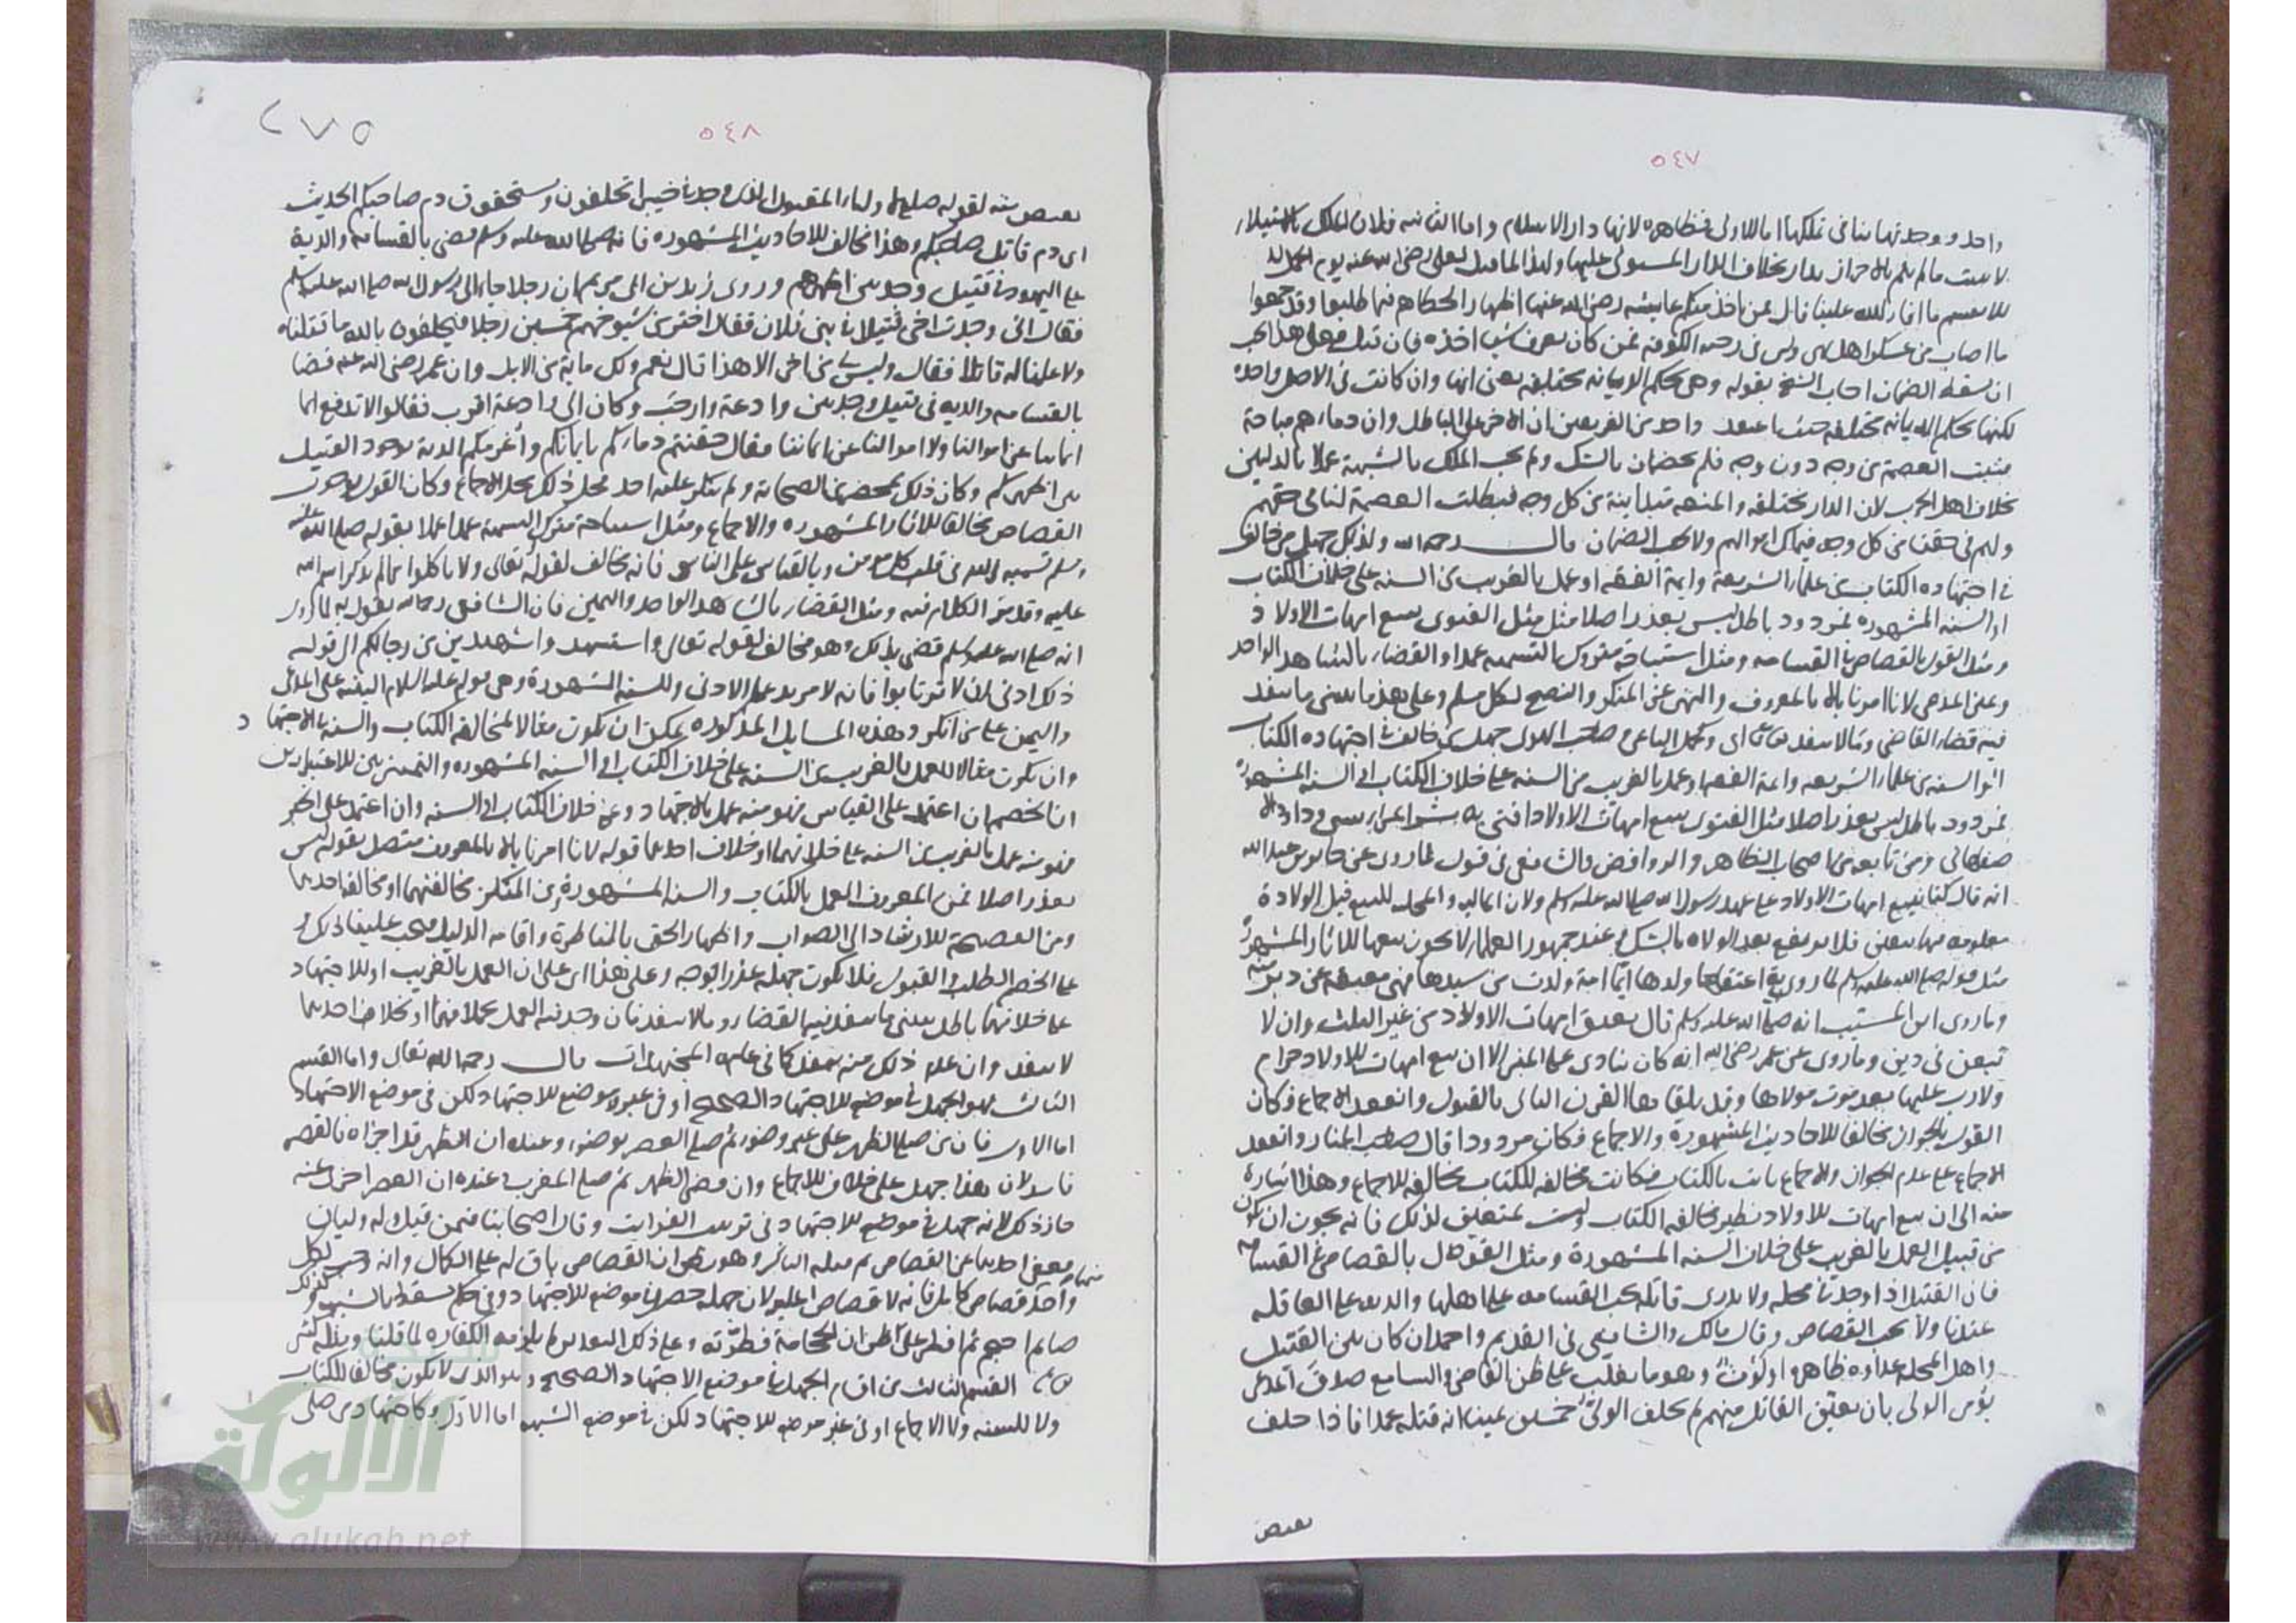 ٥٤٧
واحدة ووحدتها تنافي تملكها اما الاولى فظاهره لانها دار الاسلام واما الثانيه فلان الملك بالاستيلاء
لا يثبت مالم يتم بالاحراز بدار بخلاف الدار المستولى عليها ولهذا لما قيل لعلى رضي الله عنه يوم الجمل الا
تقسم ما افاء الله علينا قال فمن ياخذ منكم عايشه رضي الله عنها اظهارا لخطاهم فيما طلبوا وقد جمعوا
ما اصاب من عسكر اهل في رحبه الكوفه فمن كان يعرف شيا اخذه فان قيل فعلى هذا يجب
ان يسقط الضمان اجاب الشيخ بقوله وهي بحكم الديانه مختلفه يعني انها وان كانت في الاصل واحدة
لكنها بحكم الديانه مختلفه حيث اعتقد واحد من الفريقين ان الاخر على الباطل وان دماءهم مباحة
فثبت العصمة من وجه دون وجه فلم يجب ضمان بالشك ولم يجب الملك بالشبهة عملا بالدليلين
بخلاف اهل الحرب لان الدار مختلفه والمنعه متباينة من كل وجه فبطلت العصمة لنا في حقهم
ولهم في حقنا من كل وجه فيملك اموالهم ولا يجب الضمان قال رحمه الله وكذلك جهل من خالف
في اجتهاده الكتاب من علماء الشريعة وايمة الفقه او عمل بالغريب من السنة على خلاف الكتاب
او السنه المشهوره فمردود باطل ليس بعذر اصلا مثل الفتوى ببيع امهات الاولاد
ومثل القول بالقصاص بالقسامه ومثل استباحة متروك التسميه عمدا والقضاء بالشاهد الواحد
ويمين المدعي لانا امرنا بالامر بالمعروف والنهي عن المنكر والنصح لكل مسلم وعلى هذا يبتنى ما ينفد
فيه قضاء القاضي وما لا ينفد اي وكجهل الباغي وصاحب الهوى جهل من خالف في اجتهاده الكتاب
او السنه من علماء الشريعه وايمة الفقه او عمل بالغريب من السنه على خلاف الكتاب او السنه المشهوره
فمردود باطل ليس بعذر اصلا مثل الفتوى ببيع امهات الاولاد افتى به بشر المريسي وداود الا
صفهاني ومن تابعه من اصحاب الظاهر والروافض والشافعي في قول لما روى عن جابر بن عبد الله
انه قال كنا نبيع امهات الاولاد على عهد رسول الله صلى الله عليه وسلم ولان الماليه والمحليه للبيع قبل الولادة
معلومه فيها بيقين فلا يرتفع بعد الولاده بالشك وعند جمهور العلماء لا يجوز بيعها للاثار المشهورة
مثل قوله صلى الله عليه وسلم لماريه اعتقها ولدها ايما امة ولدت من سيدها فهي معتقه عن دبر منه
وما روى ابن المسيب انه صلى الله عليه وسلم قال بعتق امهات الاولاد من غير الثلث وان لا
تبعن في دين وما روى عن عمر رضي الله انه كان ينادى على المنبر الا ان بيع امهات الاولاد حرام
ولا رق عليها بعد موت مولاها وقد تلقاها القرن الثاني بالقبول وانعقد الاجماع فكان
القول بالجواز مخالفا للاحاديث المشهورة والاجماع فكان مردودا قال صاحب المنار وانعقد
الاجماع على عدم الجواز والاجماع ثابت بالكتاب فكانت مخالفه للكتاب مخالفه للاجماع وهذا اشارة
منه الى ان بيع امهات الاولاد نظير مخالفه الكتاب وليست بمتعلق لذلك فانه يجوز ان يكون
من قبيل العمل بالغريب على خلاف السنه المشهورة ومثل القول بالقصاص في القسامه
فان القتيل اذا وجد في محله ولا يدرى قاتله تجب القسامه على اهلها والديه على العاقله
عندنا ولا يجب القصاص وقال مالك والشافعي في القديم واحمد ان كان بين القتيل
واهل المحله عداوه ظاهره او لوث وهو ما يغلب على ظن القاضي والسامع صدق المدعي
يؤمر الولي بان يعين القاتل منهم ثم يحلف الولى خمسين يمينا انه قتله عمدا فاذا حلف
يقتص
٥٤٨
٢٧٥
يقتص منه لقوله صلعم لاولياء المقتول الذي وجد في خيبر اتحلفون وتستحقون دم صاحبكم الحديث
اى دم قاتل صاحبكم وهذا مخالف للاحاديث المشهوره فانه صلى الله عليه وسلم قضى بالقسامه والدية
على اليهود في قتيل وجد بين اظهرهم وروى زياد بن ابي مريم ان رجلا جاء الى رسول الله صلى الله عليه وسلم
فقال اني وجدت اخي قتيلا في بني فلان فقال اختر من شيوخهم خمسين رجلا فيحلفون بالله ما قتلناه
ولا علمنا له قاتلا فقال وليس لي من اخي الا هذا قال نعم ولك ماية من الابل وان عمر رضي الله عنه قضا
بالقسامه والديه في قتيل وجد بين وادعة وارحب وكان الى وادعة اقرب فقالوا لا تدفع ايما
ايماننا عن اموالنا ولا اموالنا عن ايماننا فقال حقنتم دماءكم بايمانكم واغرمكم الدية لوجود القتيل
بين اظهركم وكان ذلك بمحضر من الصحابة ولم ينكر عليه احد فحل ذلك محل الاجماع وكان القول بوجوب
القصاص مخالفا للاثار المشهوره والاجماع ومثل استباحة متروك التسمية عمدا عملا بقوله صلى الله عليه
وسلم تسميه الله في قلب كل مومن وبالقياس على الناسي فانه مخالف لقوله تعالى ولا تاكلوا مما لم يذكر اسم الله
عليه وقد مر الكلام فيه ومثل القضاء بالشاهد الواحد واليمين فان الشافعي رحمه الله يقول به لما روى
انه صلى الله عليه وسلم قضى بذلك وهو مخالف لقوله تعالى واستشهدوا شهيدين من رجالكم الى قوله
ذلك ادنى ان لا ترتابوا فانه لا مزيد على الادنى وللسنه المشهورة وهي قوله عليه السلام البينه على المدعي
واليمين على من انكر وهذه المسايل المذكوره يمكن ان تكون مثالا لمخالفه الكتاب والسنه بالاجتهاد
وان تكون مثالا للعمل بالغريب من السنه على خلاف الكتاب او السنه المشهوره والتمييز بين الاعتبارين
ان الخصم ان اعتمد على القياس فهو منه عمل بالاجتهاد وعلى خلاف الكتاب او السنه وان اعتمد على الخبر
فهو منه عمل بالغريب من السنه على خلافهما او خلاف احدهما قوله لانا امرنا بالامر بالمعروف متصل بقوله ليس
بعذر اصلا فمن المعروف العمل بالكتاب والسنه المشهورة ومن المنكر مخالفتهما او مخالفه احدهما
ومن النصيحة الارشاد الى الصواب واظهار الحق بالمناظرة واقامه الدليل فيجب علينا ذلك و
على الخصم الطلب والقبول فلا يكون جهله عذرا بوجه وعلى هذا اي على ان العمل بالغريب او الاجتهاد
على خلافهما باطل يبتنى ما ينفد فيه القضاء وما لا ينفد فان وجد فيه العمل بخلافهما او بخلاف احدهما
لا ينفد وان عدم ذلك منه ينفد كما في عامه المجتهدات قال رحمه الله تعالى واما القسم
الثالث فهو الجهل في موضع الاجتهاد الصحيح او في غير موضع الاجتهاد لكن في موضع الاجتهاد
اما الاول فان من صلى الظهر على غير وضوء ثم صلى العصر بوضوء وعنده ان الظهر قد اجزاه فالعصر
فاسد لان هذا جهل على خلاف الاجماع وان قضى الظهر ثم صلى المغرب وعنده ان العصر اجزا عنه
جاز ذلك لانه جهل في موضع الاجتهاد في ترتيب الفوايت وقال اصحابنا فيمن قتل وله وليان
فعفى احدهما عن القصاص ثم قتله الثاني وهو يظن ان القصاص باق له على الكمال وانه وجب لكل
واحد منهما قصاص كامل فانه لا قصاص عليه لان جهله حصل في موضع الاجتهاد وفي حكم يسقط بالشبهه وكذلك
صايم احتجم ثم افطر على ظن ان الحجامة فطرته وعلى ذلك التقدير لم يلزمه الكفاره لما قلنا ومثله كثير
القسم الثالث من اقسام الجهل في موضع الاجتهاد الصحيح وهو الذي لا يكون مخالفا للكتاب
ولا للسنه ولا الاجماع او في غير موضع الاجتهاد لكن في موضع الشبهه اما الاول فكاجتهاد من صلى
الألوكة
www.alukah.net